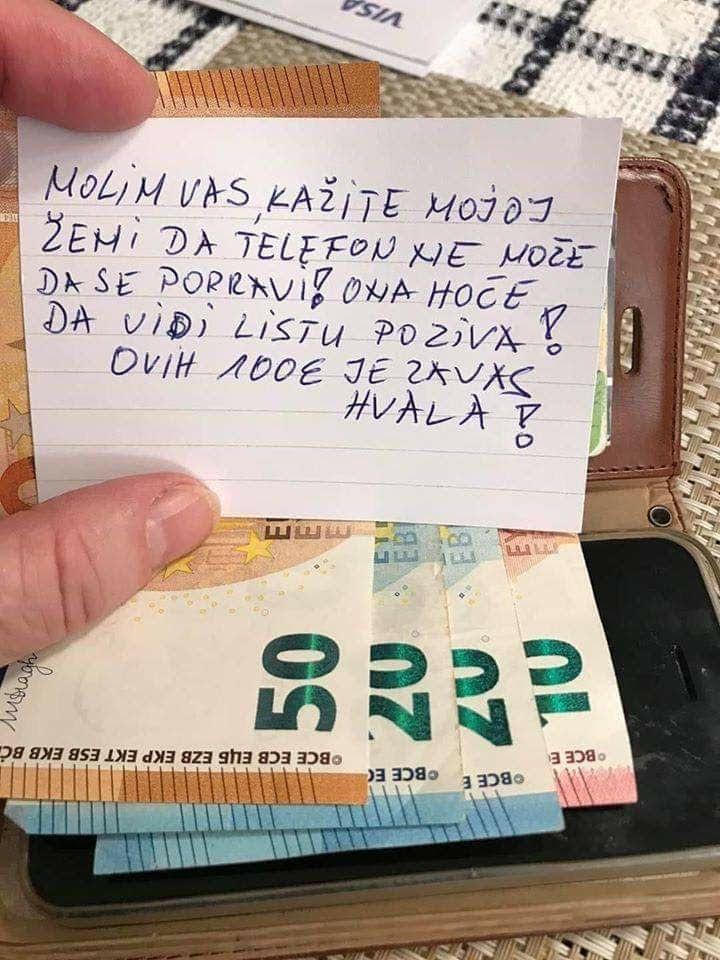 VISA
MOLIM VAS, KAŽITE MOJOJ
ŽENI DA TELEFON NE MOŽE
DA SE POPRAVI! ONA HOĆE
DA VIDI LISTU POZIVA!
OVIH 100€ JE ZA VAS
HVALA!
50
20
20
10
©BCE ECB ЕЦБ EZB EKP EKT ESB EKB BC
©BCE E
©BCE E
©BCE E